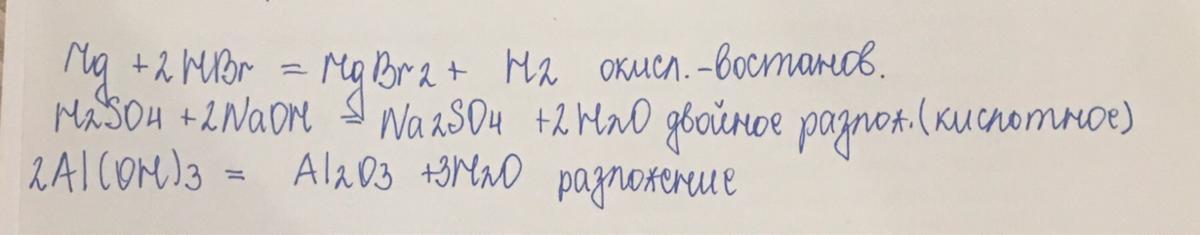 Mg + 2HBr = MgBr2 + H2 окисл. -востанов.
H2SO4 + 2NaOH = Na2SO4 + 2H2O двойное разлож. (кислотное)
2Al(OH)3 = Al2O3 + 3H2O разложение